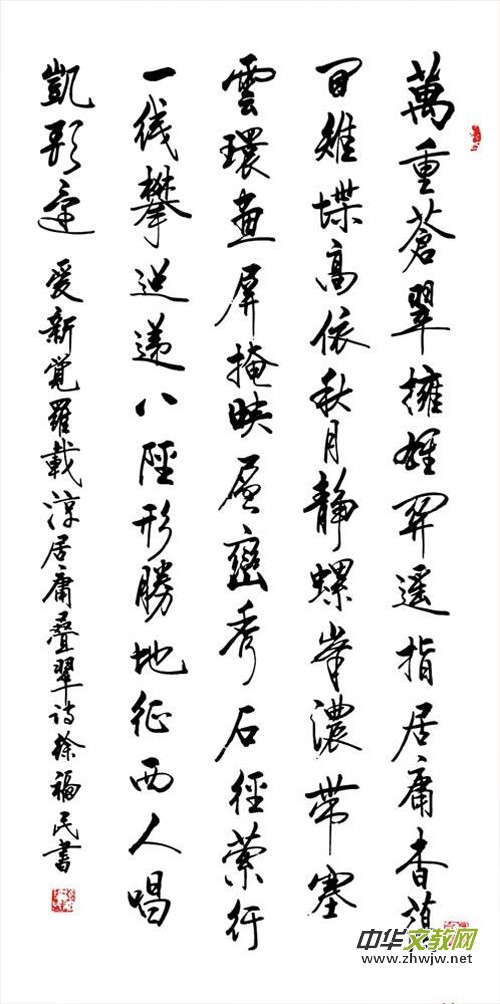 萬重蒼翠擁雄関遥指居庸杳靄
间雉堞高依秋月静螺峯濃帶塞
雲環畫屏掩映层巒秀石徑縈紆
一线攀迢递八陘形勝地征西人唱
凱歌还 爱新覚羅載淳居庸疊翠诗徐福民書
中华文教网
www.zhwjw.net